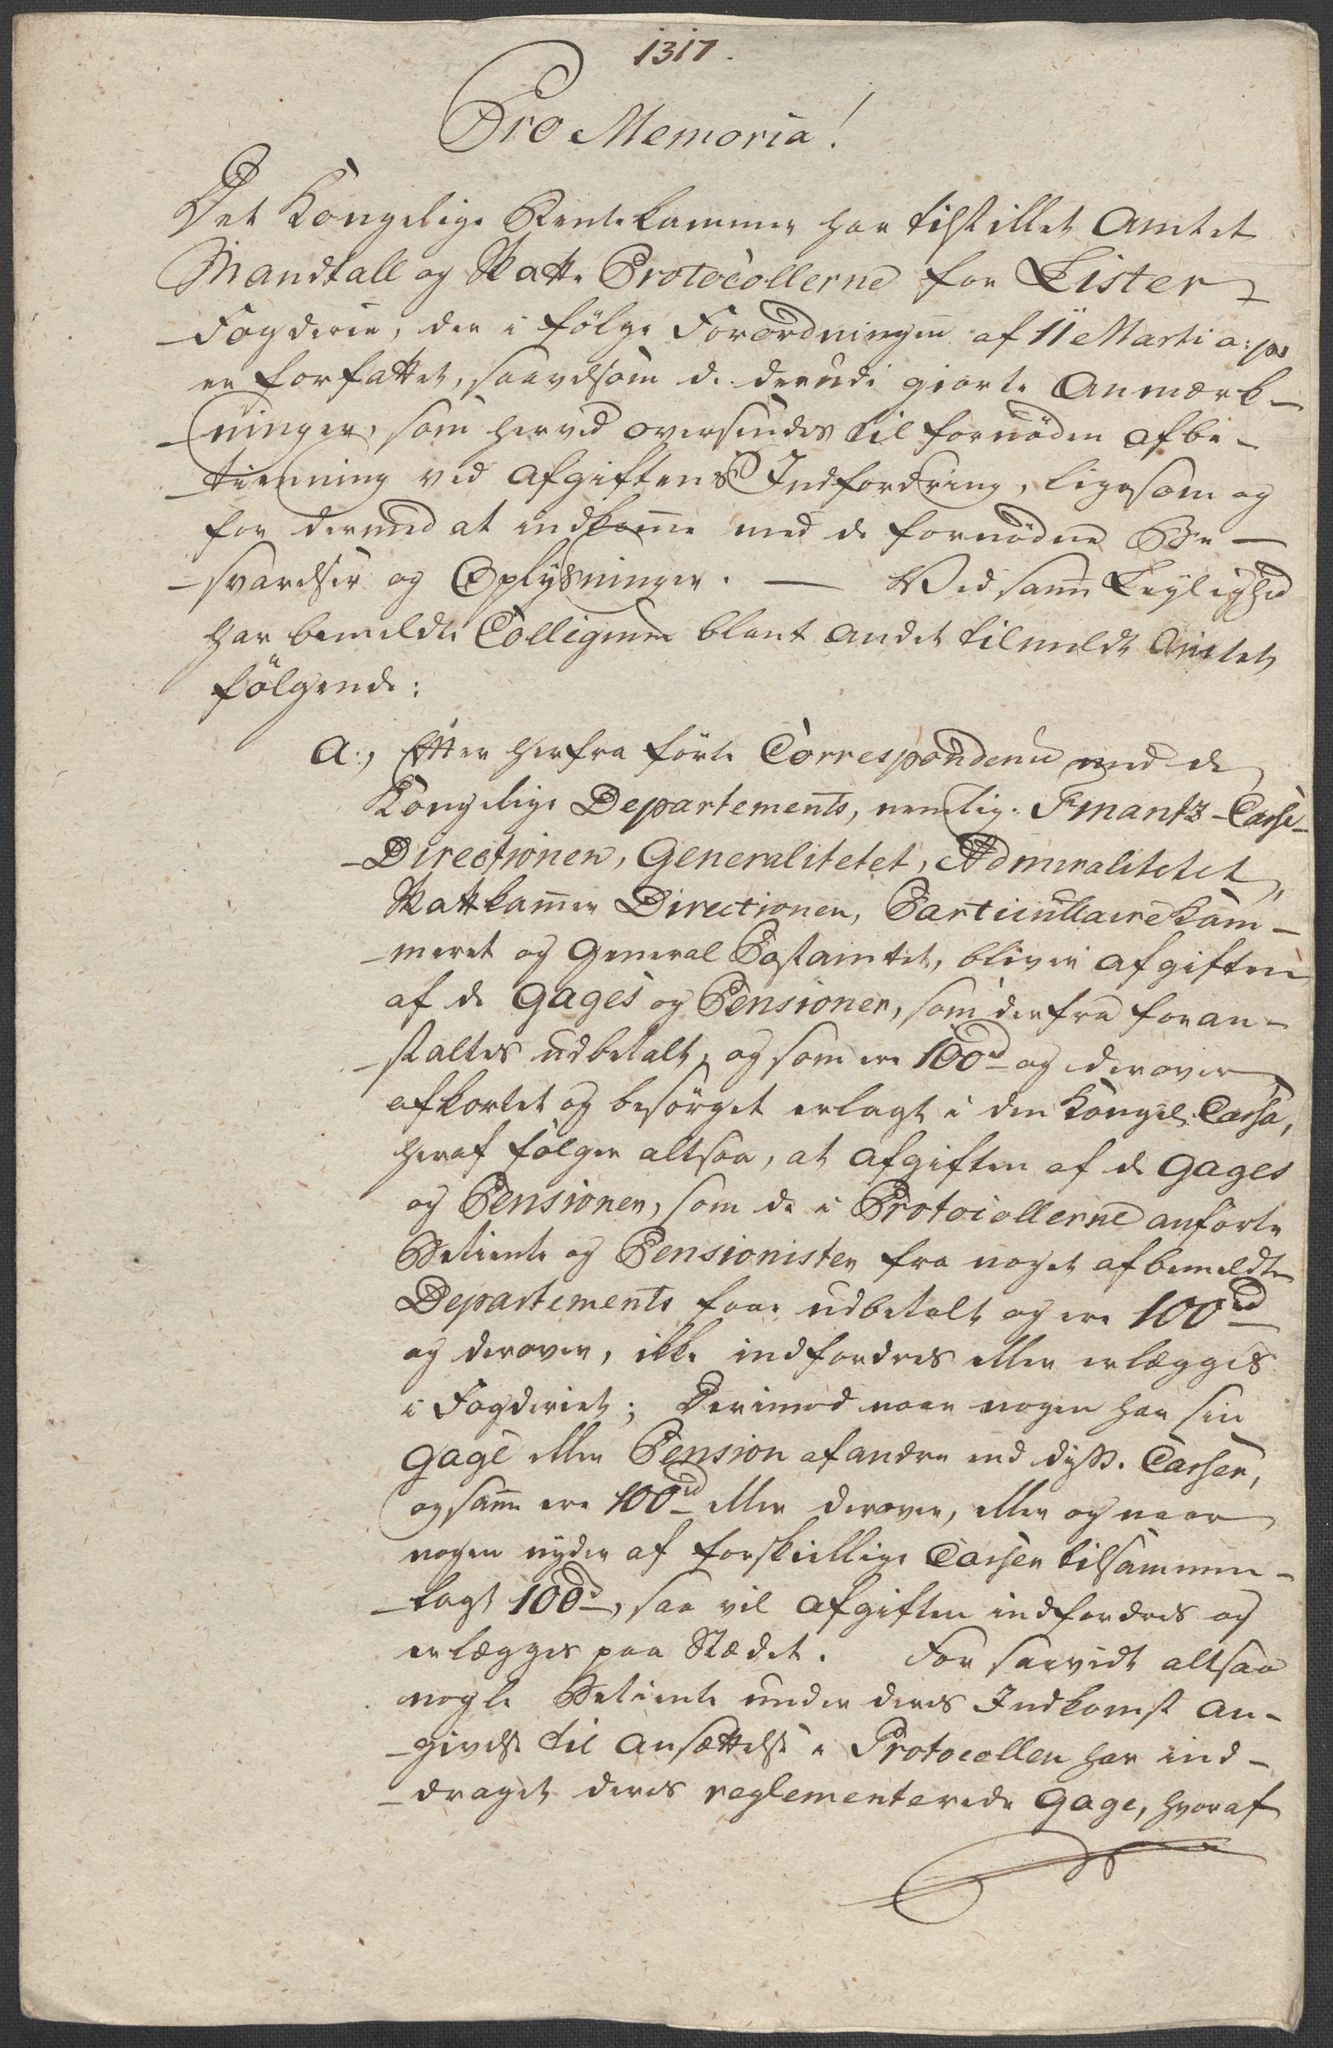 1317.
Pro Memoria!
Det Kongelige Rentekammer har tilstillet Amtet
Mandtall og Skatte Protocollerne for Lister
Fogderie, der i følge Forordningen af 11 Martii a: p:
er forfattet, saavelsom de derudi giorte Anmærk-
-ninger, som herved oversendes til fornøden afbe-
-tienning ved Afgiftens Indfordring, ligesom og
for derimod at indkom̄e med de fornødne Be-
-svarelser og Oplysninger. — Ved sam̄e Leylighed
har bemeldte Collegium blant andet tilmeldt Amtet
følgende:
a., Efter herfra førte Correspondence med de
Kongelige Departements, nemlig: Finantz-Casse-
-Directionen, Generalitetet, Admiralitetet,
Skatkam̄er Directionen, Particulaire Kam-
-meret og General Postamtet, bliver Afgiften
af de Gages og Pensioner, som derfra foran-
-staltes udbetalt, og som ere 100rd og derover
afkortet og besørget erlagt i den Kongel. Cassa,
heraf følger altsaa, at Afgiften af de Gages
og Pensioner, som de i Protocollerne anførte
Betiente og Pensionister fra noget af bemeldte
Departements faae udbetalt og ere 100rd
og derover, ikke indfordres eller erlægges
i Fogderiet; Derimod naar nogen har sin
Gage eller Pension af andre end disse Casser,
og sam̄e ere 100rd eller derover, eller og naar
nogen nyder af forskiellige Casser tilsammen-
-lagt 100rd, saa vil Afgiften indfordres og
erlægges paa Stædet. For saavidt altsaa
nogle Betiente under deres Indkomst An-
-givelse til Ansættelse i Protocollen har ind-
-draget deres reglementerede Gage, hvoraf